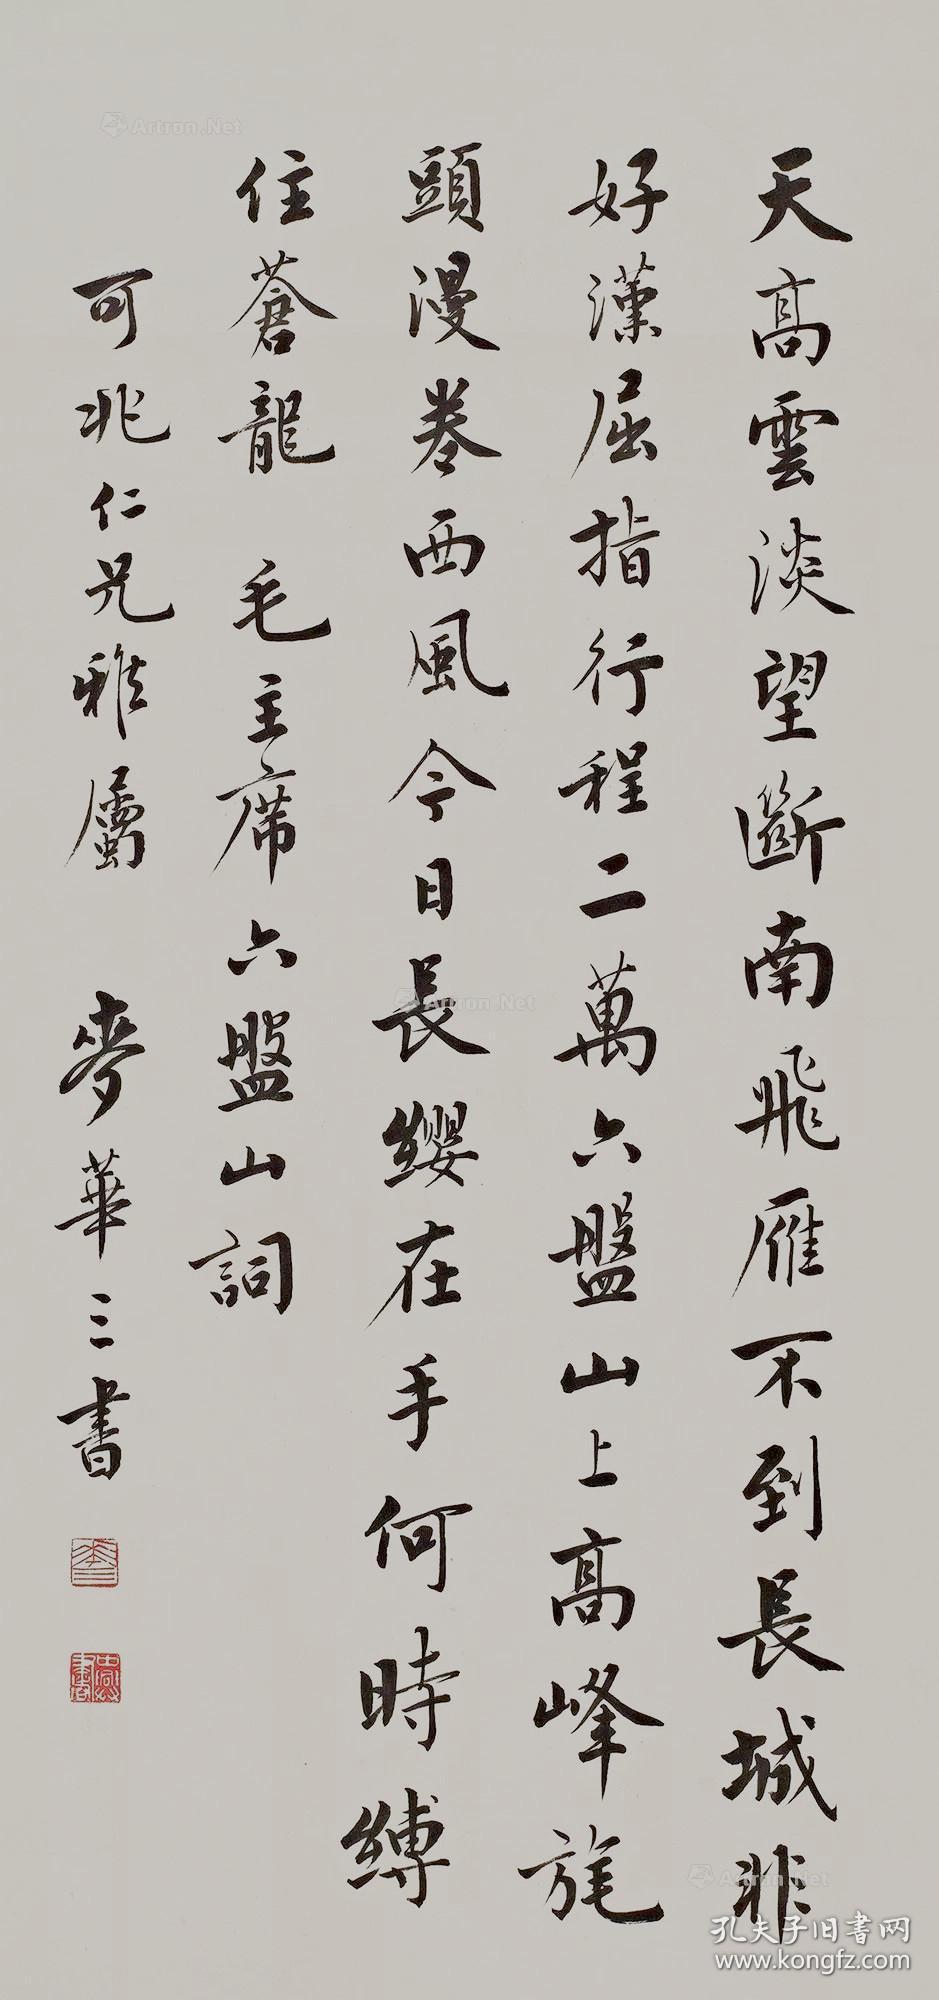 天高雲淡望斷南飛雁不到長城非
好漢屈指行程二萬六盤山上高峰旄
頭漫卷西風今日長纓在手何時縛
住蒼龍 毛主席六盤山詞
可兆仁兄雅屬 麥華三書
Artron.Net
Artron.Net
Artron.Net
孔夫子旧書网
www.kongfz.com